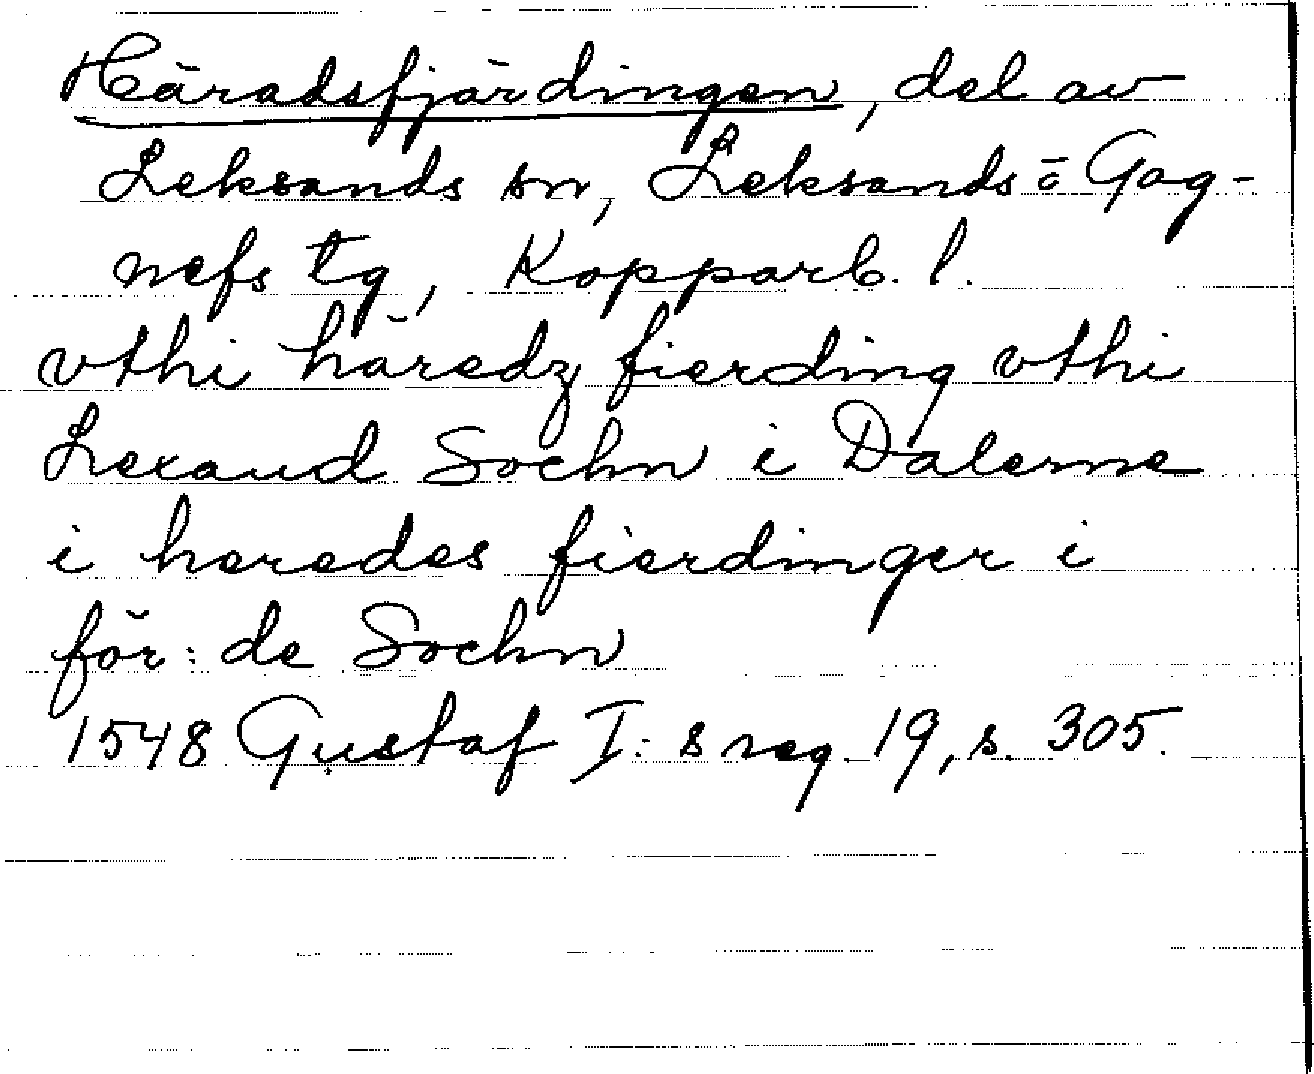 Häradsfjärdingen, del av
Leksands sn, Leksands o Gag-
nefs tg, Kopparb. l.
vthi häredz fierding vthi
Lexand Sochn i Dalerne
i heredes fierdinger i
för: de Sochn
1548 Gustaf I: s reg. 19, s. 305.